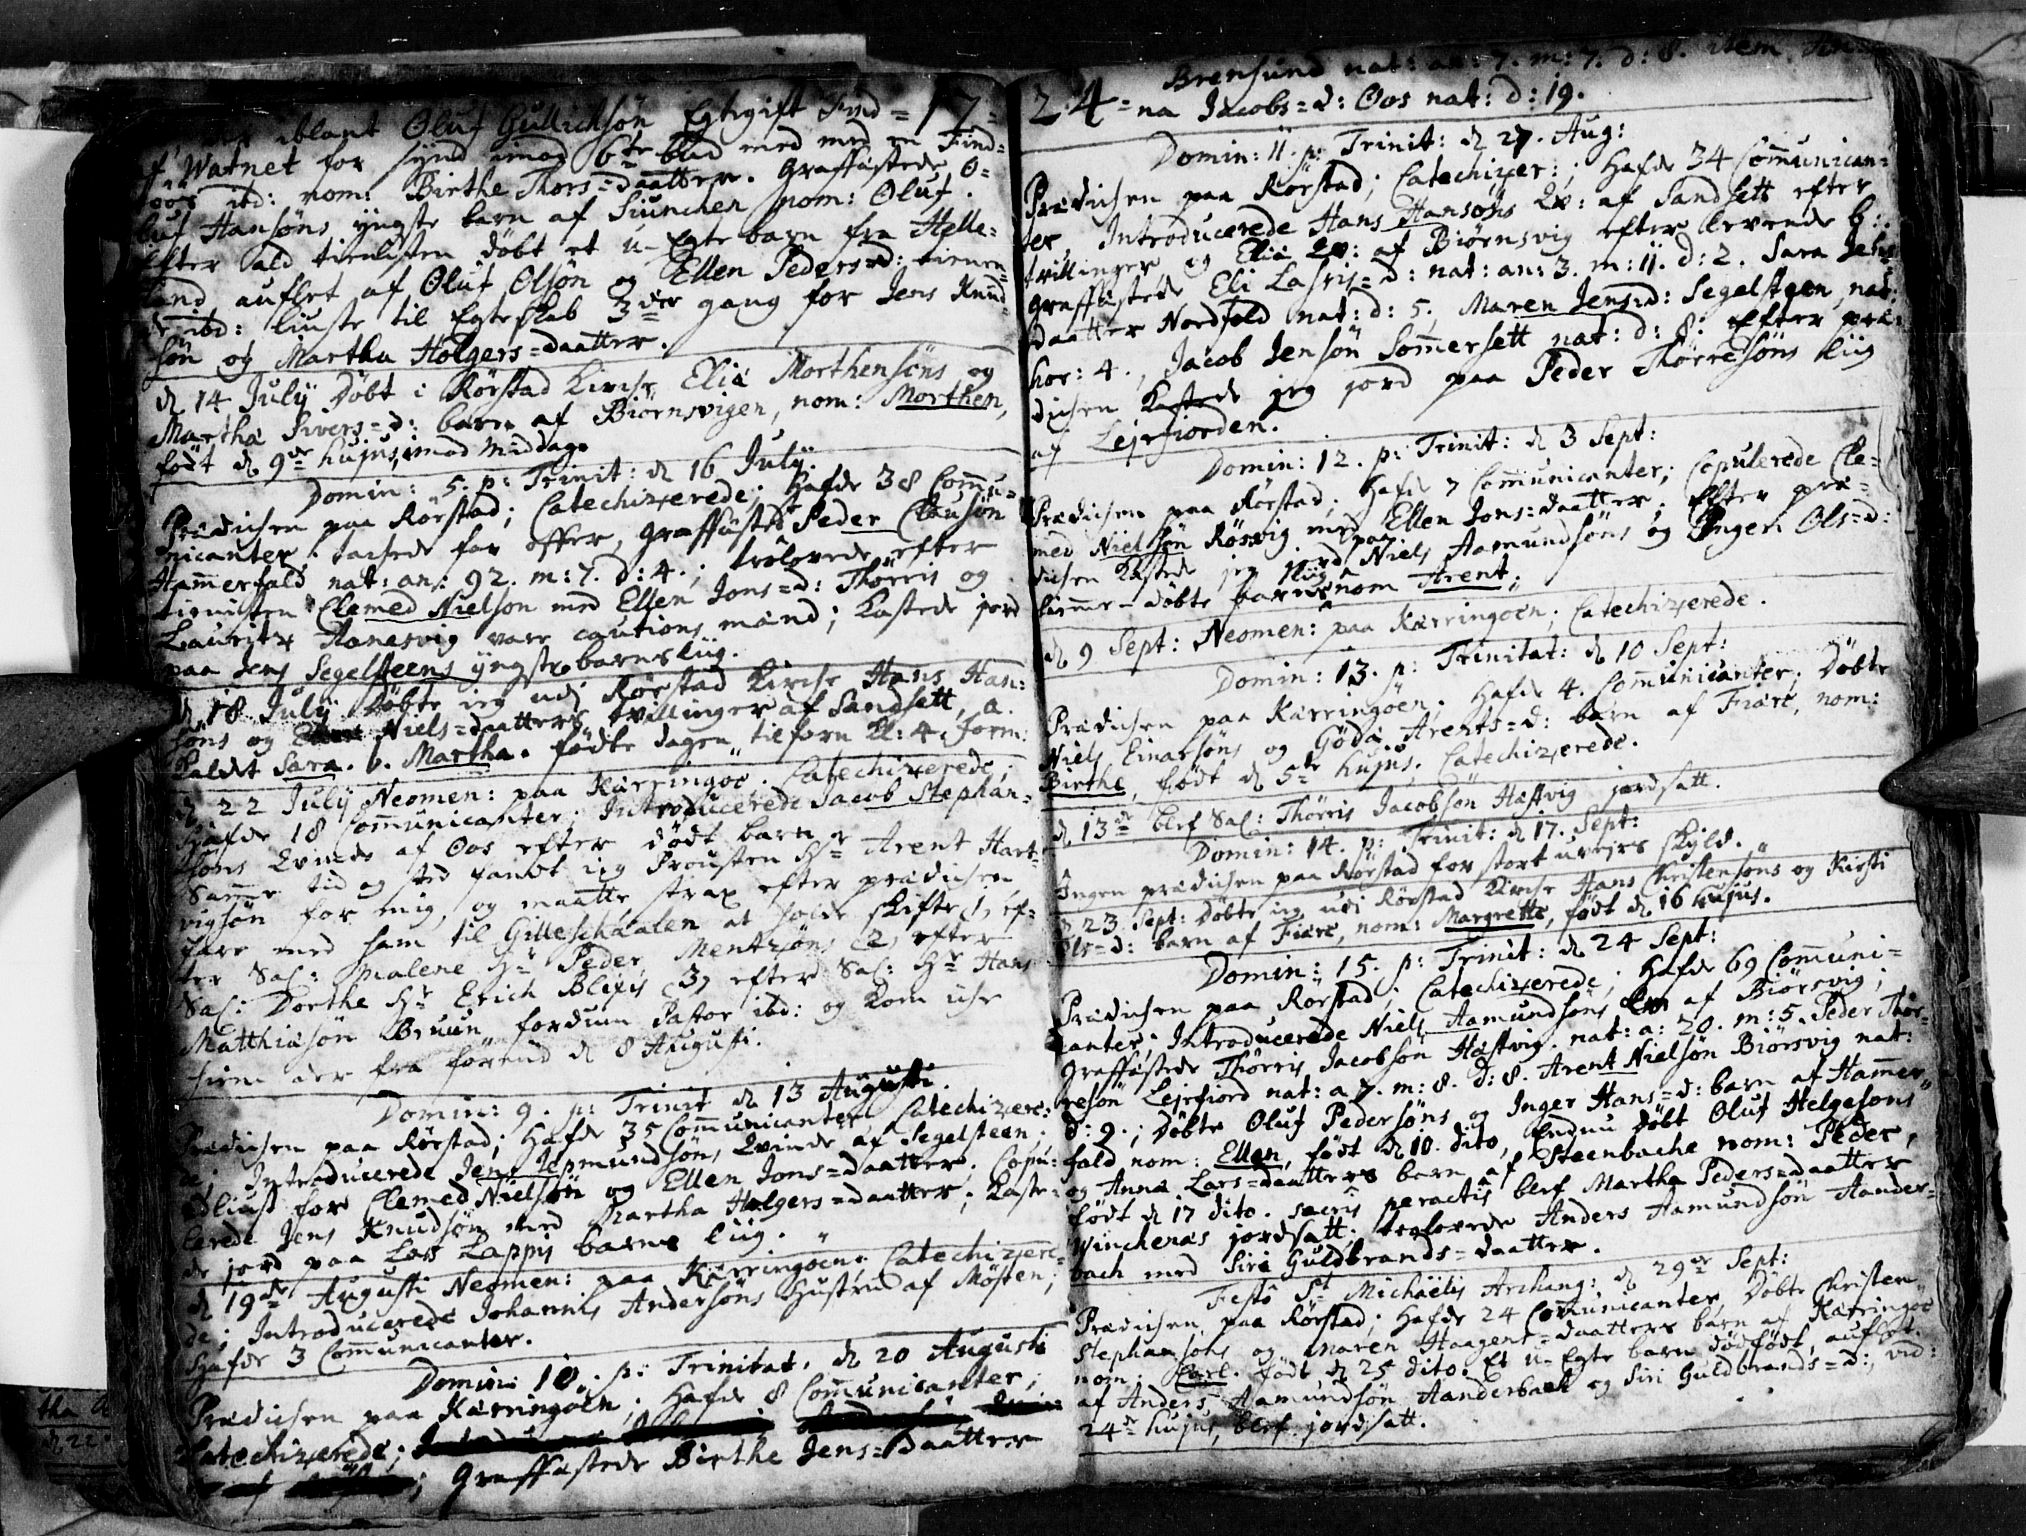 iblant Oluf Gullichsøn Egtegift Find = 17 =
Watnet for synd imod 6te bud med en Find-
ibd: nom: Birthe Thors=daatter. Graffästede O=
luf Hansøns yngste barn af Siunchen nom: Oluf.
Efter ald tienisten döbt et u-Egte barn fra Helle=
land, auflet af Oluf Olsøn og Ellen Peders=d: tienen-
de ibd: liuste til Egteskab 3die gang for Jens Knud-
søn og Martha Holgers=daatter.
d. 14 July Döbt i Rörstad Kirche Elia Morthensöns og
Martha Sivers=d: barn af Biörnsvigen, nom: Morthen,
födt d. 9de hujus, imod Middag.
Domin: 5. p: Trinit: d. 16 July.
Prædichen paa Rörstad; Catechizerede; Hafde 38 Commu-
nicanter; tachede for offer, Graffästed Peder Clausøn
Hammerfald nat: an: 92. m: 7. d: 4.; trolovede efter
tienisten Clemed Nielson med Ellen Jons=d: Thörris og
Lauritz Aanesvig vare cautions mænd; Kastede jord
paa Jens Segelsteens yngste barns liig.
d. 18 July Döbte jeg udi Rörstad Kirche Hans Han-
söns og Niels=daatters tvillinger af Sandsett, a.
Kaldt Sara. b. Martha. födte dagen tilforn Kl: 4. Form:
d. 22 July Neomen: paa Karringöe. Catechizerede;
Hafde 18 Communicanter; Introducerede Jacob Stephan-
söns Qvinde af Oos efter dödt barn.
Samme tid og sted fandt jeg Prousten Hr Arent Hart-
vigsøn for mig, og maatte strax efter prædichen
fare med ham til Gilleschaalen at holde skifte 1, ef-
ter Sal: Malene Hr Peder Mentzöns 2, efter
Sal: Dorthe Hr Erich Blixis 3, efter Sal: Hr Hans
Matthiasøn Bruun fordum Pastor ibd: og kom iche
hiem der fra förend d. 8 Augusti.
Domin: 9. p: Trinit d. 13 Augusti.
Prædichen paa Rörstad; Hafde 35 Communicanter, Catechizere-
de; Introducerede Jens Jepmundsøn, Qvinde af Segelsteen;
Edliust for Clemed Nielsøn og Ellen Jons=daatter. Copu-
lerede Jens Knudsøn med Martha Holgers=daatter; Kaste-
de jord paa Lars Lappis barns liig.
d. 19de Augusti Neomen: paa Karringöen. Catechizere-
de; Introducerede Johannis Andersöns Hustru af Mösten;
Hafde 3 Communicanter.
Domin: 10. p: Trinitat. d. 20 Augusti
Prædichen paa Karringöen; Hafde 8 Communicanter;
Catechizerede;
; Graffästede Birthe Jens=daatter
Brensund nat: an: 7. m: 7. d: 8. item An-
24 = na Jacobs=d: Oos nat: d: 19.
Domin: 11. p: Trinit: d. 27. Aug:
Prædichen paa Rörstad; Catechizer:; Hafde 34 Communican-
ter, Introducerede Hans Hansöns Qv: af Sandsett efter
tvillinger og Elia Qv: af Biörnsvig efter levende b:
Graffästede Eli Lasris=d: nat: an: 3. m: 11. d: 2. Sara Jens
daatter Nordfold nat: d: 5, Maren Jens=d: Segelsteen, nat:
hor: 4., Jacob Jensøn Sommersett nat: d: 8. Efter præ-
dichen Kastede jeg jord paa Peder Thörresöns liig
af Lejrfiorden.
Domin: 12. p: Trinit: d. 3 Sept:
Prædichen paa Rörstad; Hafde 7 Communicanter; Copulerede Cle-
med Nielsøn Rösvig med Ellen Jons=daatter; Efter præ-
dichen Kastede jeg jord paa Niels Aamundsöns og Inger Ols=d:
hieme-döbte barns liig nom Arent.
d. 9 Sept: Neomen: paa Karringöen; Catechizerede.
Domin: 13. p: Trinitat: d. 10 Sept:
Prædichen paa Karringöen; Hafde 4. Communicanter; Döbte
Niels Einarsöns og Göda Arents=d: barn af Fiære, nom:
Birthe, födt d. 5te hujus; Catechizerede.
d. 13de blef Sal: Thörris Jacobsøn Hæstvig jordsatt.
Domin: 14. p: Trinit: d. 17. Sept:
Ingen prædichen paa Rörstad for stort uvejrs skyld.
d. 23. Sept: Döbte jeg udi Rörstad Kirche Hans Christensöns og Kirsti
Ols=d: barn af Fiære, nom: Margrette, födt d. 16 hujus.
Domin: 15. p: Trinit: d. 24 Sept:
Prædichen paa Rörstad; Catechizerede; Hafde 69 Communi-
canter; Introducerede Niels Aamundsöns Qv: af Biörsvig;
Graffästede Thörris Jacobsøn Hæstvig. nat: a: 20. m: 5. Peder Thör-
resøn Lejrfiord nat: a 7. m: 8. d: 8. Arent Nielsøn Biörsvig nat:
d: 9.; Döbte Oluf Pedersöns og Inger Hans=d: barn af Hammer-
fald nom: Ellen, födt d. 10. dito, Endnu Döbt Oluf Helgesöns
og Anna Lars=daatters barn af Steenbache nom: Peder,
födt d. 17 dito. Sacris peractis blef Martha Peders=daatter
Winchenæs jordsatt: trolovede Anders Aamundsøn Aander-
bach med Siri Guldbrands=daatter.
Festo St Michaëlis Archang: d. 29de Sept:
Prædichen paa Rörstad; Hafde 24 Communicanter, Döbte Christen
Stephansöns og Maren Haagens=daatters barn af Karringöe
nom: Carl. födt d. 25 dito. Et u-Egte barn dödfödt, auflet
af Anders Aamundsøn Aanderback og Siri Guldbrands=d:, vid:
24de hujus, blef jordsatt.